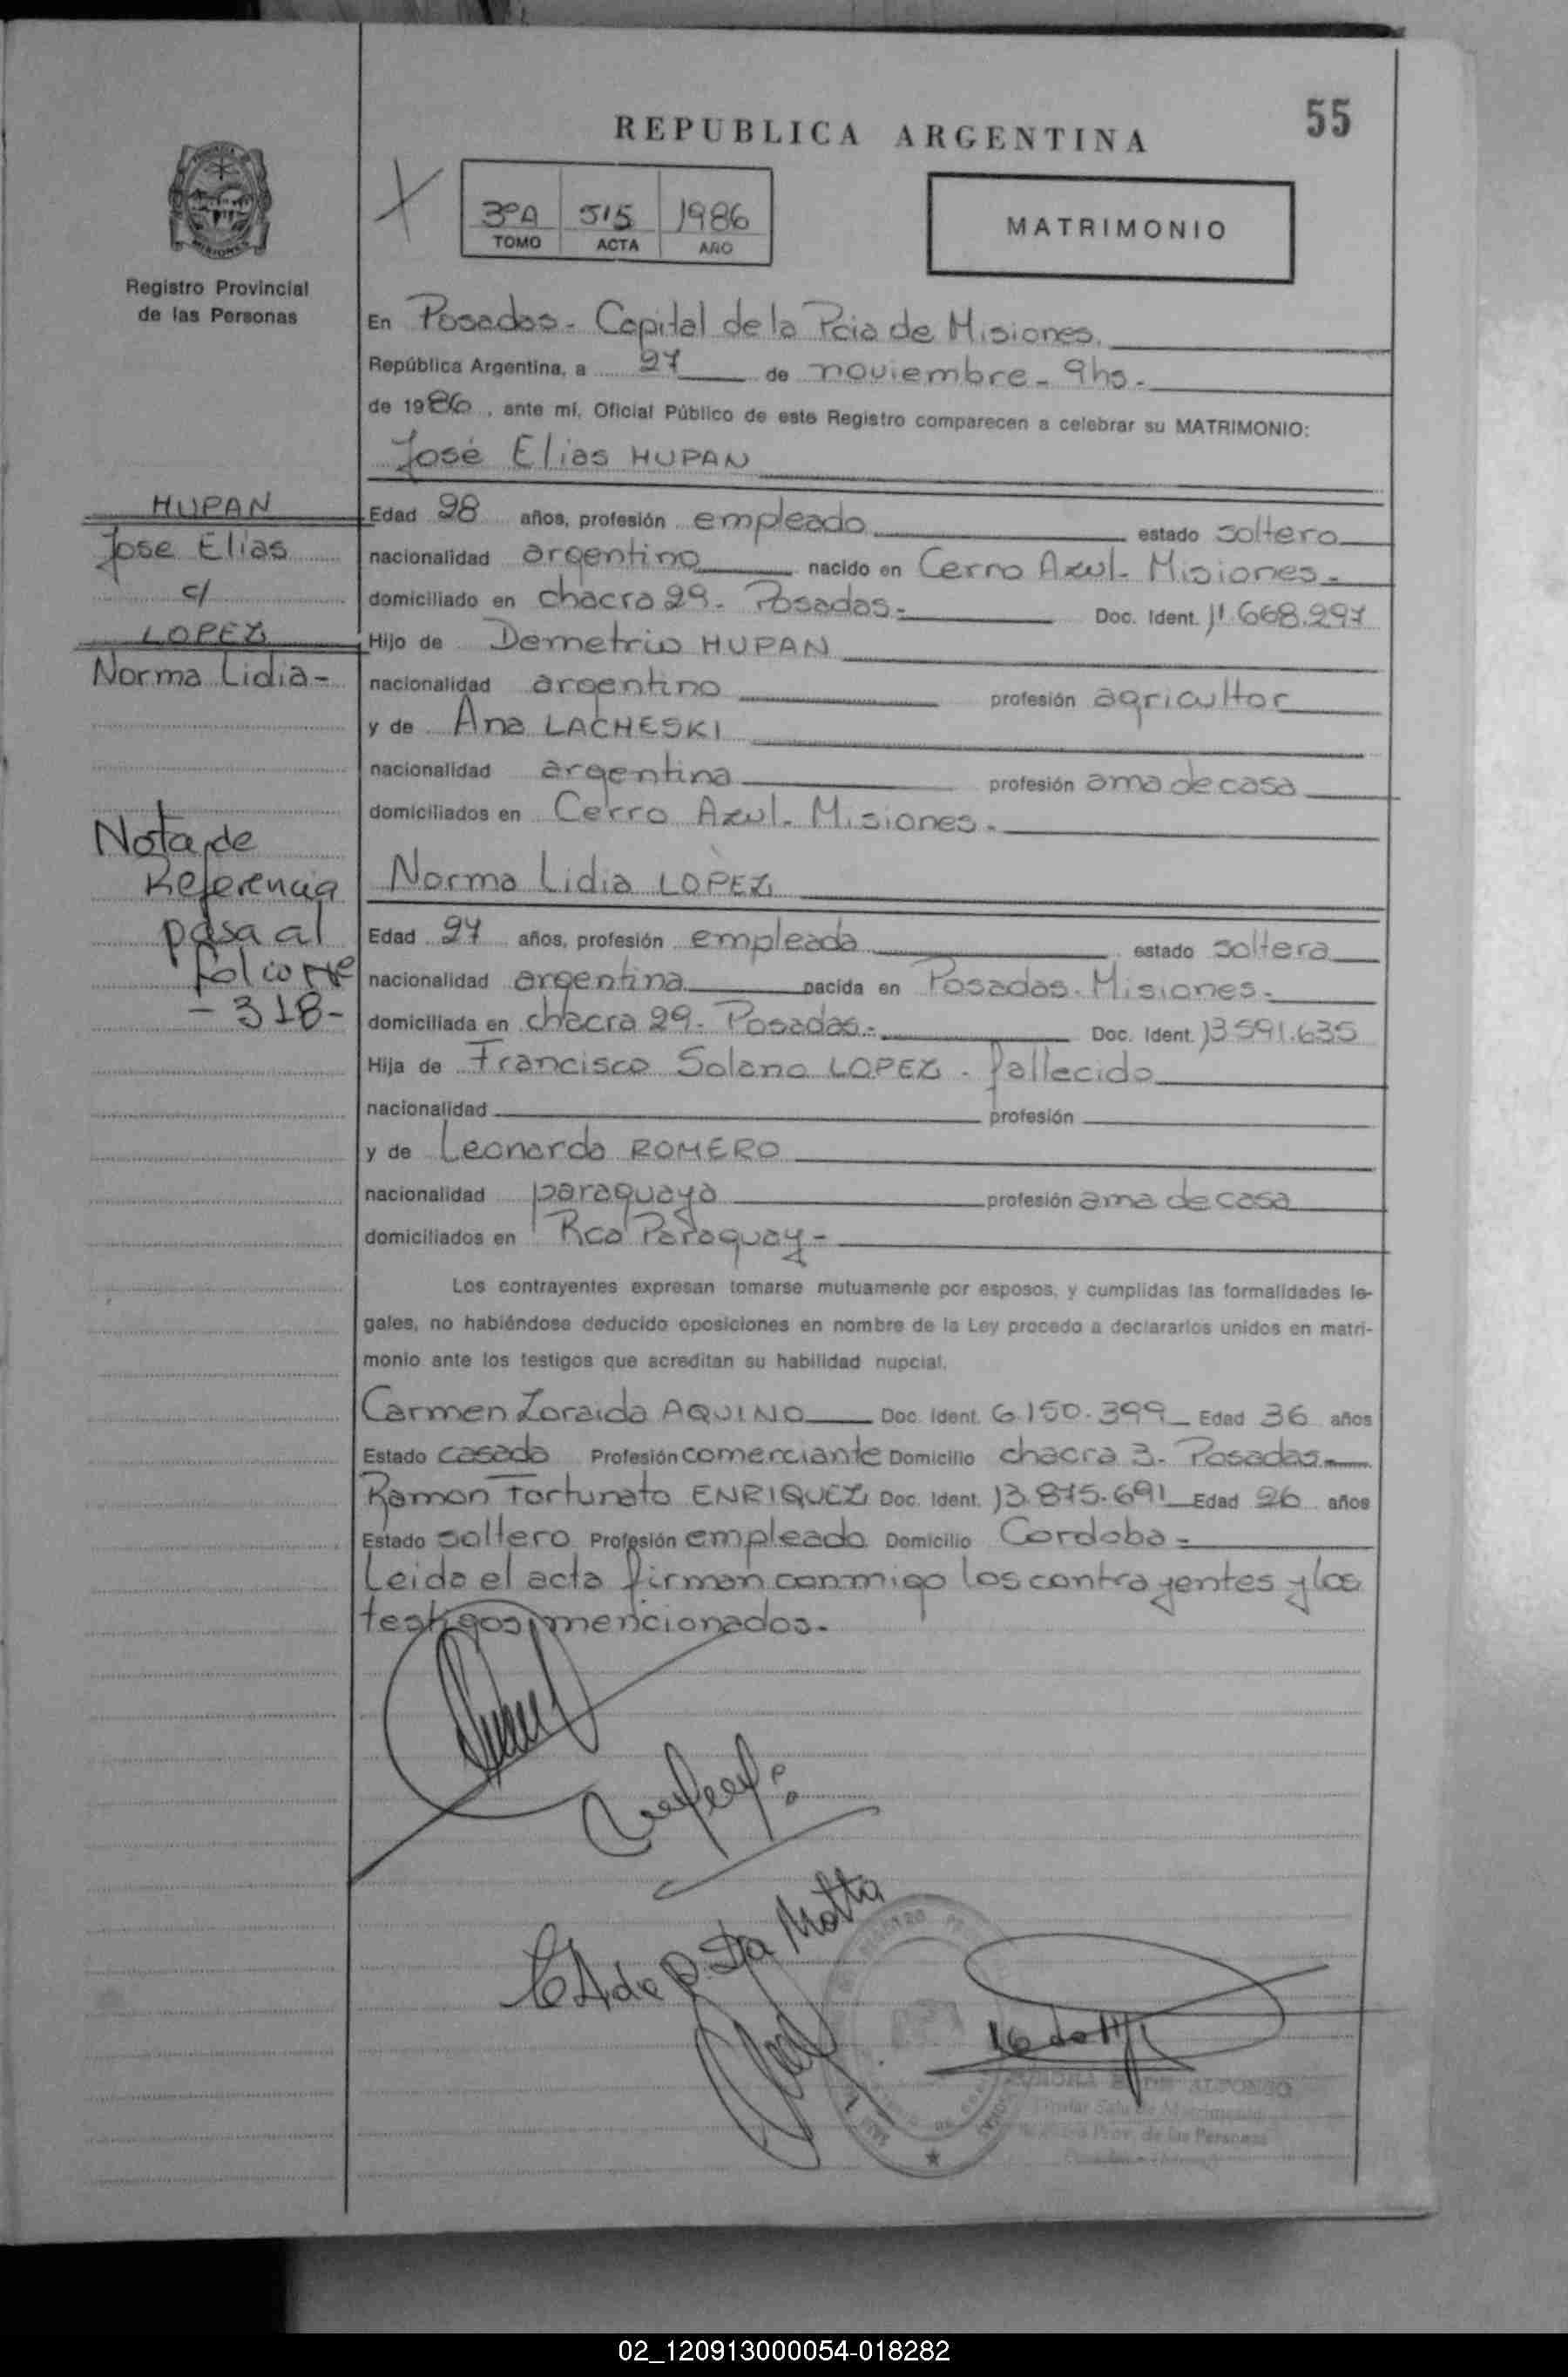 55
REPUBLICA ARGENTINA
3ºA 515 1986
TOMO ACTA AÑO
MATRIMONIO
Registro Provincial
de las Personas
En Posadas - Capital de la Pcia de Misiones.
República Argentina, a 27 de noviembre - 9 hs -
de 1986, ante mí, Oficial Público de este Registro comparecen a celebrar su MATRIMONIO:
José Elias HUPAN
HUPAN
Jose Elias
c/
LOPEZ
Norma Lidia -
Edad 28 años, profesión empleado estado soltero
nacionalidad argentino nacido en Cerro Azul - Misiones -
domiciliado en chacra 29 - Posadas - Doc. Ident. 11.668.297
Hijo de Demetrio HUPAN
nacionalidad argentino profesión agricultor
y de Ana LACHESKI
nacionalidad argentina profesión ama de casa
domiciliados en Cerro Azul - Misiones -
Nota de
Referencia
pasa al
- 318 -
Norma Lidia LOPEZ
Edad 27 años, profesión empleada estado soltera
nacionalidad argentina nacida en Posadas - Misiones -
domiciliada en chacra 29 - Posadas - Doc. Ident. 13.591.635
Hija de Francisco Solano LOPEZ - fallecido
nacionalidad profesión
y de Leonarda ROMERO
nacionalidad paraguaya profesión ama de casa
domiciliados en Rca Paraguay -
Los contrayentes expresan tomarse mutuamente por esposos, y cumplidas las formalidades le-
gales, no habiéndose deducido oposiciones en nombre de la Ley procedo a declararlos unidos en matri-
monio ante los testigos que acreditan su habilidad nupcial.
Carmen Zoraida AQUINO Doc. Ident. 6.150.399 Edad 36 años
Estado casada Profesión comerciante Domicilio chacra 3 - Posadas -
Ramon Fortunato ENRIQUEZ Doc. Ident. 13.875.691 Edad 26 años
Estado soltero Profesión empleado Domicilio Cordoba -
Leida el acta firman conmigo los contrayentes y los
testigos mencionados.
de las Personas
02_120913000054-018282